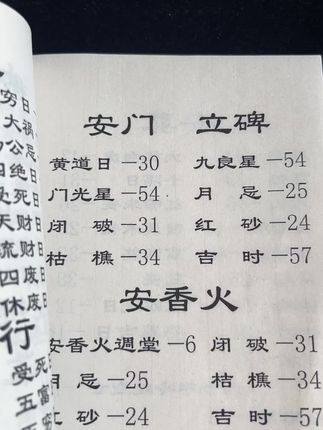 穷日
大祸
公忌
四绝日
受死日
天财日
流财日
四废日
休废日
行
受死
五富
安门 立碑
黄道日—30 九良星—54
门光星—54 月忌—25
闭破—31 红砂—24
枯樵—34 吉时—57
安香火
安香火週堂—6 闭破—31
月忌—25 桔樵—34
红砂—24 吉时—57